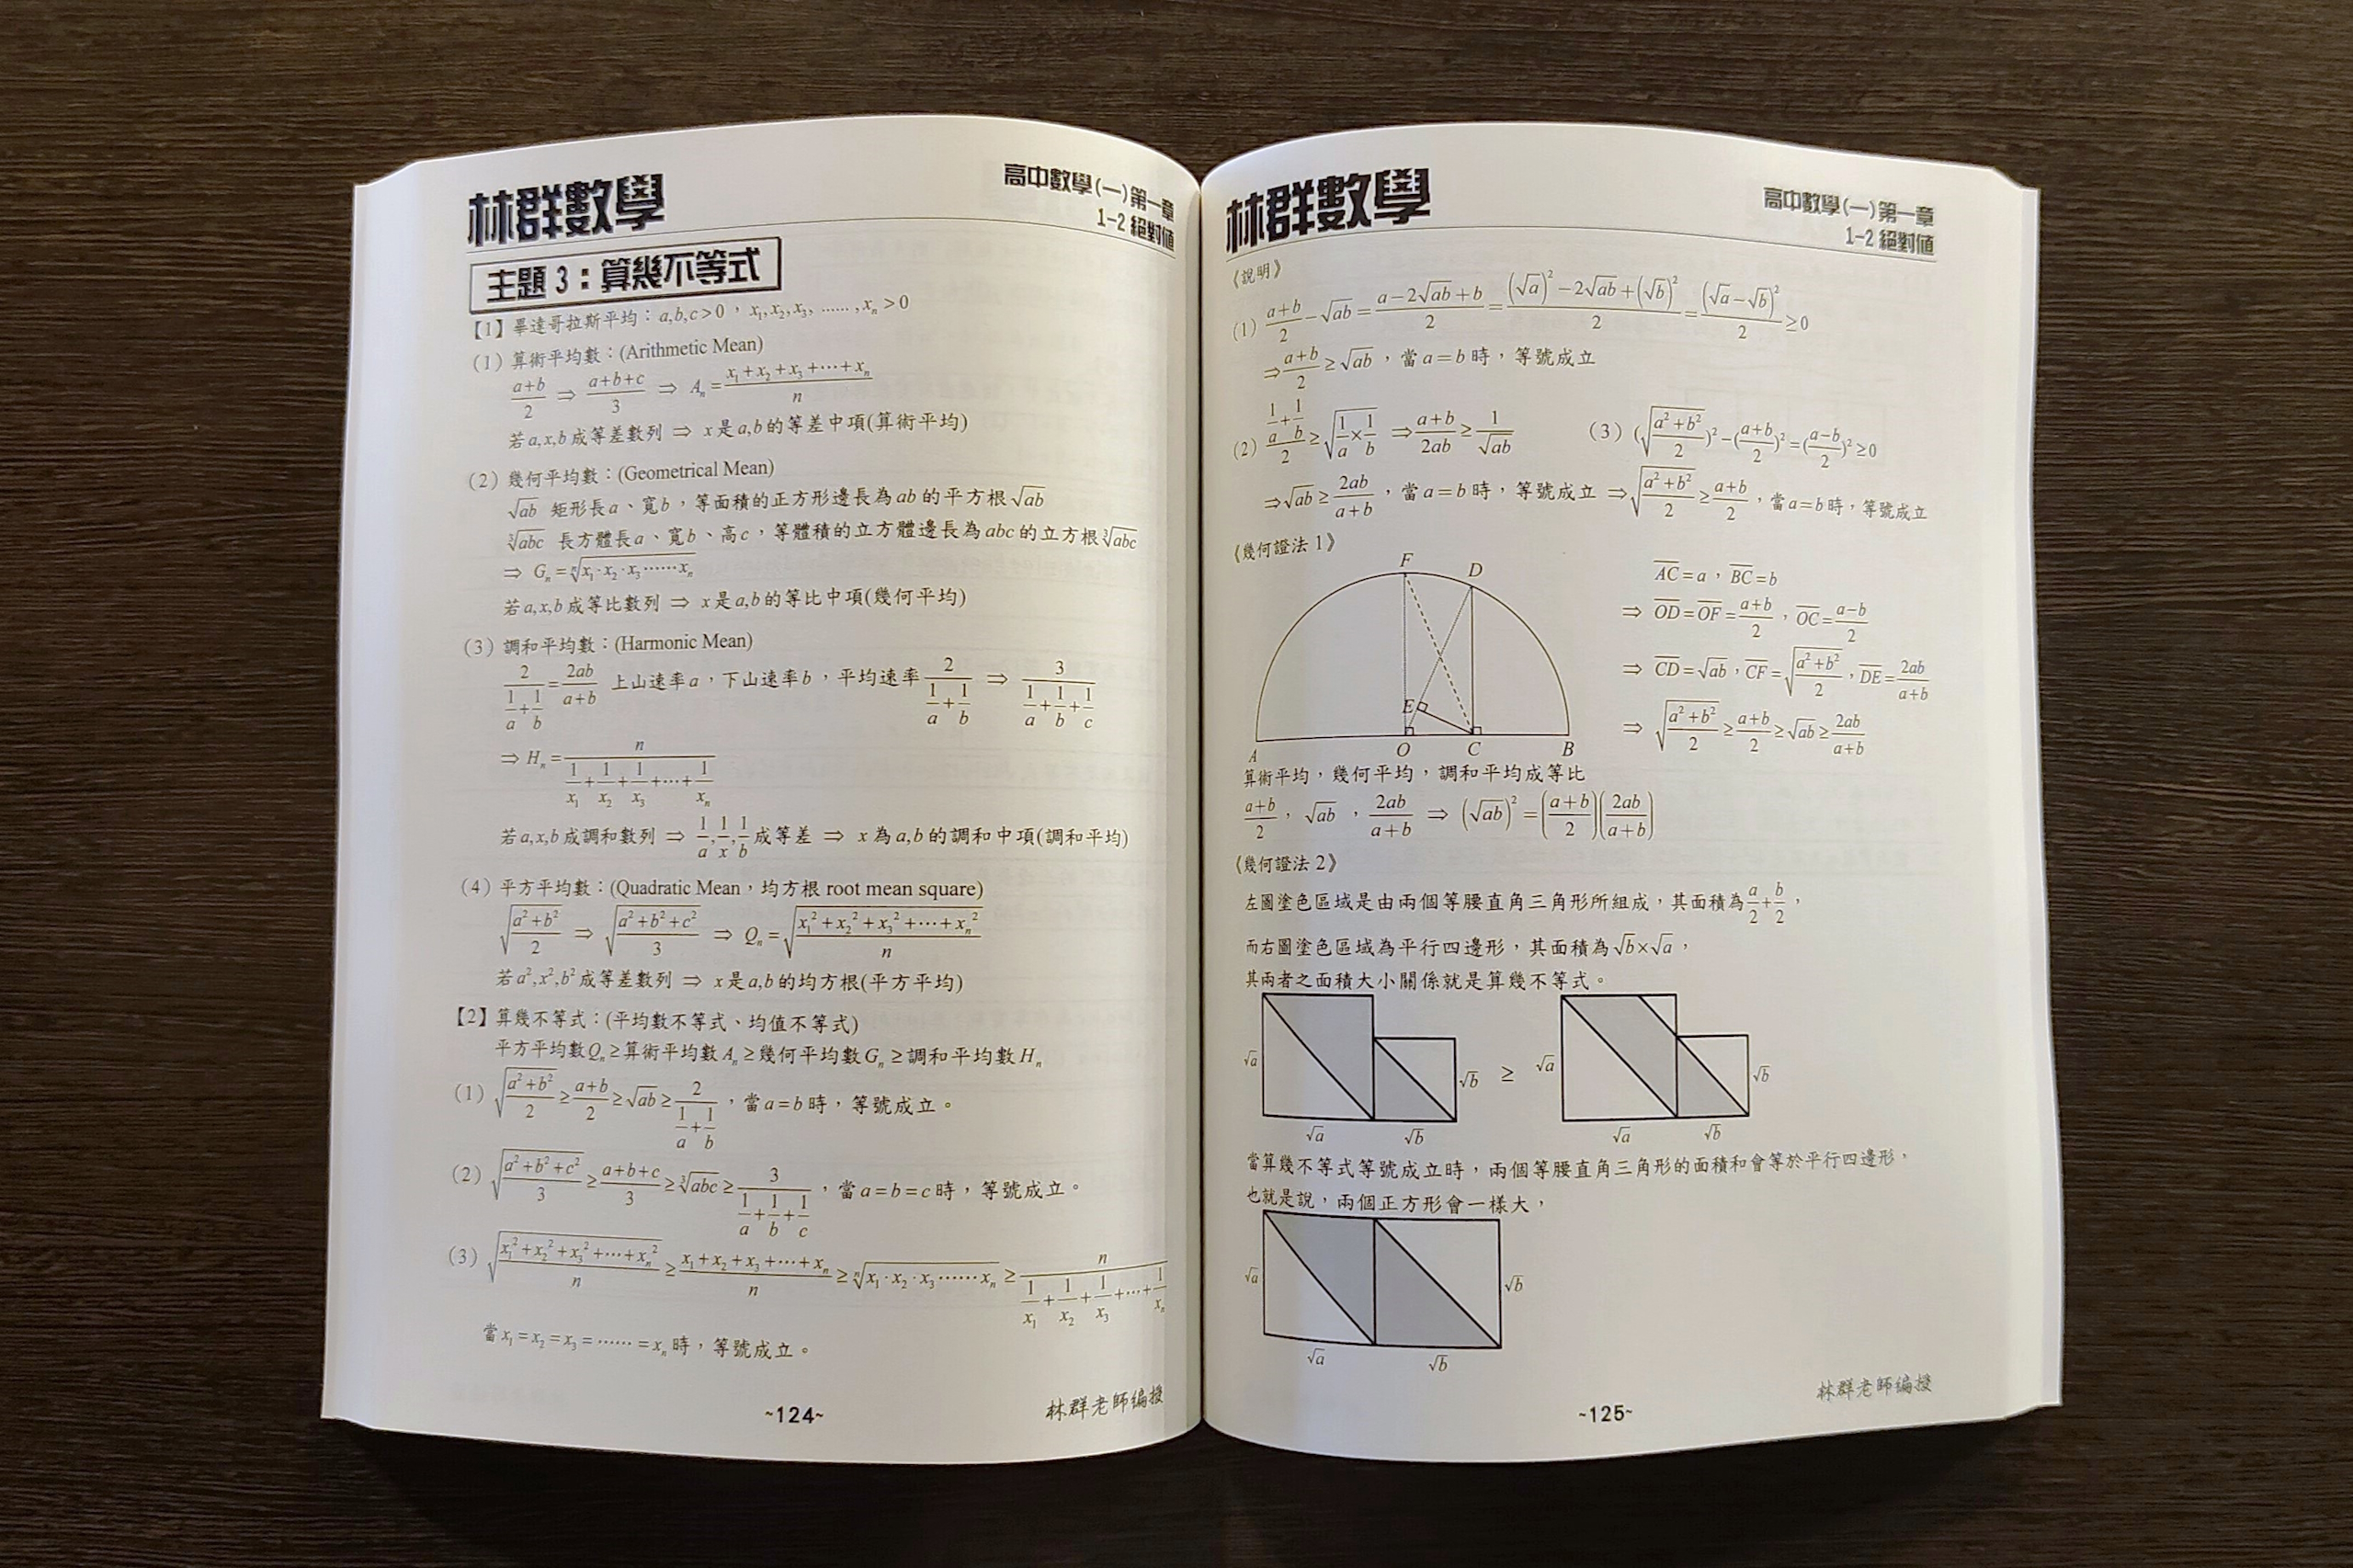 林群數學
高中數學(一)第一章
1-2 絕對值
主題 3：算幾不等式
【1】畢達哥拉斯平均：a,b,c>0，x₁,x₂,x₃, ⋯⋯ ,xₙ>0
(1) 算術平均數：(Arithmetic Mean)
(a+b)/2 ⇒ (a+b+c)/3 ⇒ Aₙ=(x₁+x₂+x₃+⋯+xₙ)/n
若a,x,b成等差數列 ⇒ x是a,b的等差中項(算術平均)
(2) 幾何平均數：(Geometrical Mean)
√(ab) 矩形長a、寬b，等面積的正方形邊長為ab的平方根√(ab)
∛(abc) 長方體長a、寬b、高c，等體積的立方體邊長為abc的立方根∛(abc)
⇒ Gₙ=ⁿ√(x₁·x₂·x₃⋯⋯xₙ)
若a,x,b成等比數列 ⇒ x是a,b的等比中項(幾何平均)
(3) 調和平均數：(Harmonic Mean)
2/(1/a+1/b)=2ab/(a+b) 上山速率a，下山速率b，平均速率2/(1/a+1/b) ⇒ 3/(1/a+1/b+1/c)
⇒ Hₙ=n/(1/x₁+1/x₂+1/x₃+⋯+1/xₙ)
若a,x,b成調和數列 ⇒ 1/a,1/x,1/b成等差 ⇒ x為a,b的調和中項(調和平均)
(4) 平方平均數：(Quadratic Mean，均方根 root mean square)
√((a²+b²)/2) ⇒ √((a²+b²+c²)/3) ⇒ Qₙ=√((x₁²+x₂²+x₃²+⋯+xₙ²)/n)
若a²,x²,b²成等差數列 ⇒ x是a,b的均方根(平方平均)
【2】算幾不等式：(平均數不等式、均值不等式)
平方平均數Qₙ≥算術平均數Aₙ≥幾何平均數Gₙ≥調和平均數Hₙ
(1) √((a²+b²)/2)≥(a+b)/2≥√(ab)≥2/(1/a+1/b)，當a=b時，等號成立。
(2) √((a²+b²+c²)/3)≥(a+b+c)/3≥∛(abc)≥3/(1/a+1/b+1/c)，當a=b=c時，等號成立。
(3) √((x₁²+x₂²+x₃²+⋯+xₙ²)/n)≥(x₁+x₂+x₃+⋯+xₙ)/n≥ⁿ√(x₁·x₂·x₃⋯⋯xₙ)≥n/(1/x₁+1/x₂+1/x₃+⋯+1/xₙ)
當x₁=x₂=x₃=⋯⋯=xₙ時，等號成立。
~124~
林群老師編授
林群數學
高中數學(一)第一章
1-2 絕對值
《說明》
(1) (a+b)/2-√(ab)=(a-2√(ab)+b)/2=((√a)²-2√(ab)+(√b)²)/2=(√a-√b)²/2≥0
⇒(a+b)/2≥√(ab)，當a=b時，等號成立
(2) (1/a+1/b)/2≥√(1/a×1/b) ⇒(a+b)/2ab≥1/√(ab) (3) (√((a²+b²)/2))²-((a+b)/2)²=((a-b)/2)²≥0
⇒√(ab)≥2ab/(a+b)，當a=b時，等號成立 ⇒√((a²+b²)/2)≥(a+b)/2，當a=b時，等號成立
《幾何證法1》
F
D
E
A
O
C
B
AC=a，BC=b
⇒ OD=OF=(a+b)/2，OC=(a-b)/2
⇒ CD=√(ab)，CF=√((a²+b²)/2)，DE=2ab/(a+b)
⇒ √((a²+b²)/2)≥(a+b)/2≥√(ab)≥2ab/(a+b)
算術平均，幾何平均，調和平均成等比
(a+b)/2，√(ab)，2ab/(a+b) ⇒ (√(ab))²=((a+b)/2)(2ab/(a+b))
《幾何證法2》
左圖塗色區域是由兩個等腰直角三角形所組成，其面積為a/2+b/2，
而右圖塗色區域為平行四邊形，其面積為√b×√a，
其兩者之面積大小關係就是算幾不等式。
√a √b ≥ √a √b
√a √b √a √b
當算幾不等式等號成立時，兩個等腰直角三角形的面積和會等於平行四邊形，
也就是說，兩個正方形會一樣大，
√a √b
√a √b
~125~
林群老師編授